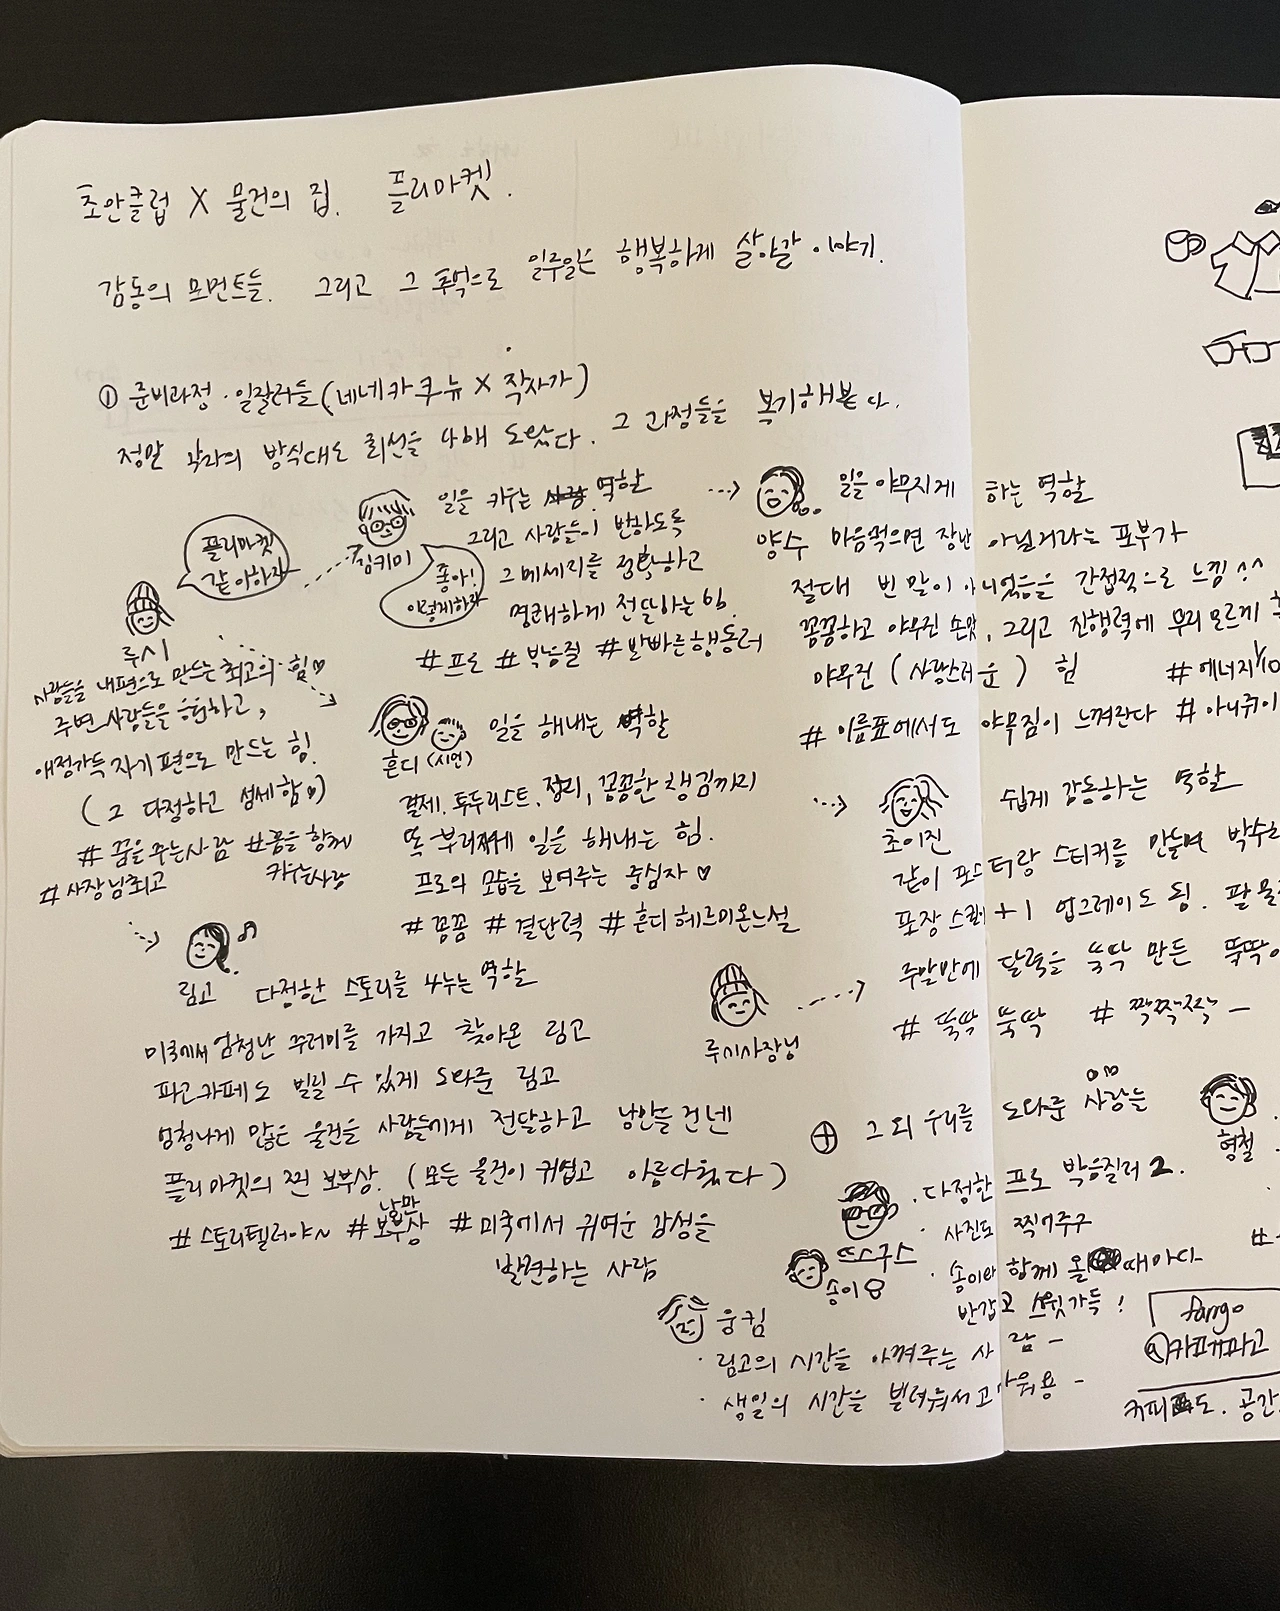 초안클럽 X 물건의 집. 플리마켓.
감동의 모먼트들. 그리고 그 추억으로 일주일은 행복하게 살아갈 이야기.
① 준비과정. 일잘러들 (네네카쿠뉴 X 작사가)
정말 각자의 방식대로 최선을 다해 도왔다. 그 과정들을 복기해본다.
플리마켓
같이하자
루시
사람들을 내편으로 만드는 최고의 힘♡
주변 사람들을 응원하고,
애정가득 자기 편으로 만드는 힘.
(그 다정하고 섬세함♡)
# 꿈을 주는 사람 #꿈을 함께
키우는 사람
# 사장님최고
김키미
좋아!
이렇게하자
일을 키우는 역할
그리고 사람들이 반하도록
그 메세지를 정확하고
명쾌하게 전달하는 힘.
# 프로 # 박음질 # 발빠른행동러
흔디 (시연)
일을 해내는 역할
결제. 투두리스트. 정리, 꼼꼼한 챙김까지
똑 부러지게 일을 해내는 힘.
프로의 모습을 보여주는 중심자♡
# 꼼꼼 # 결단력 # 흔디 헤르미온느설
림고 다정한 스토리를 나누는 역할
미국에서 엄청난 꾸러미를 가지고 찾아온 림고
파고카페도 빌릴 수 있게 도와준 림고
엄청나게 많은 물건을 사람들에게 전달하고 낭만을 건넨
플리마켓의 찐 보부상. (모든 물건이 귀엽고 아름다웠다)
# 스토리텔러야~ # 낭만 보부상 # 미국에서 귀여운 감성을
발견하는 사람
양수
일을 야무지게 하는 역할
마음먹으면 장난 아닐거라는 포부가
절대 빈 말이 아니었음을 간접적으로 느낌^^
꼼꼼하고 야무진 손맛, 그리고 진행력에 우리 모르게
야무진 (사랑스러운) 힘 # 에너지
# 이름표에서도 야무짐이 느껴진다 # 아니쥐이
초이진
쉽게 감동하는 역할
같이 포스터랑 스티커를 만들며
포장 스킬 +1 업그레이드 됨.
주말만에 달력을 뚝딱 만든
# 뚝딱 뚝딱 # 짝짝짝 –
루시사장님
⊕ 그 외 우리를 도와준 사람들
뜨스구스
· 다정한 프로 박음질러 2.
· 사진도 찍어주구
송이
· 송이와 함께 올 때마다
반갑고 스윗가득!
웅킴
· 림고의 시간을 아껴주는 사람 –
· 생일의 시간을 빌려줘서 고마워용 –
형철
fargo
@카페파고
커피도. 공간